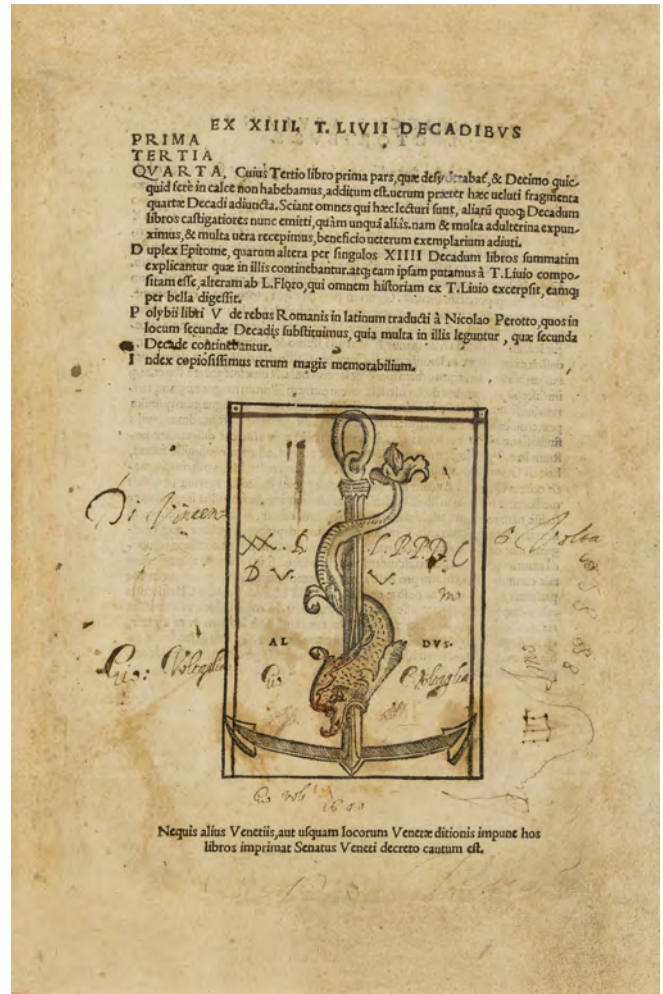 EX XIIII. T. LIVII DECADIBVS
PRIMA
TERTIA
QVARTA, Cuius Tertio libro prima pars, quæ desyderabat̃, & Decimo quic-
quid ferè in calce non habebamus, additum est. uerum præter hæc ueluti fragmenta
quartæ Decadi adiuncta. Sciant omnes qui hæc lecturi sunt, aliarũ quoq; Decadum
libros castigatiores nunc emitti, quàm unquã aliàs. nam & multa adulterina expun-
ximus, & multa uera recepimus, beneficio ueterum exemplarium adiuti.
D uplex Epitome, quarum altera per singulos XIIII Decadum libros summatim
explicantur quæ in illis continebantur. atq; eam ipsam putamus à T. Liuio compo-
sitam esse, alteram ab L. Floro, qui omnem historiam ex T. Liuio excerpsit, eamq;
per bella digessit.
P olybii libri V de rebus Romanis in latinum traducti à Nicolao Perotto, quos in
locum secundæ Decadis substituimus, quia multa in illis leguntur, quæ secunda
Decade continebantur.
I ndex copiosissimus rerum magis memorabilium.
Di Vincen
L.P.P.D.C
D V. V.
AL DVS.
Gio: Volpaglia
1600
Nequis alius Venetiis, aut usquam locorum Venetæ ditionis impune hos
libros imprimat Senatus Veneti decreto cautum est.